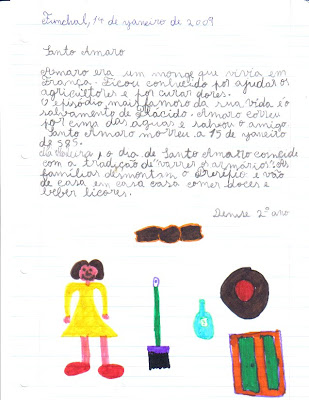 Funchal, 14 de janeiro de 2009
Santo Amaro
Amaro era um monge que vivia em
França. Ficou conhecido por ajudar os
agricultores e por curar dores.
O episódio mais famoso da sua vida é o
salvamento de Plácido. Amaro correu
por cima das águas e salvou o amigo.
Santo Amaro morreu a 15 de janeiro
de 585.
Na Madeira, o dia de Santo Amaro coincide
com a tradição de "varrer os armários". As
famílias desmontam o presépio e vão
de casa em casa casa comer doces e
beber licores.
Denise 2º ano